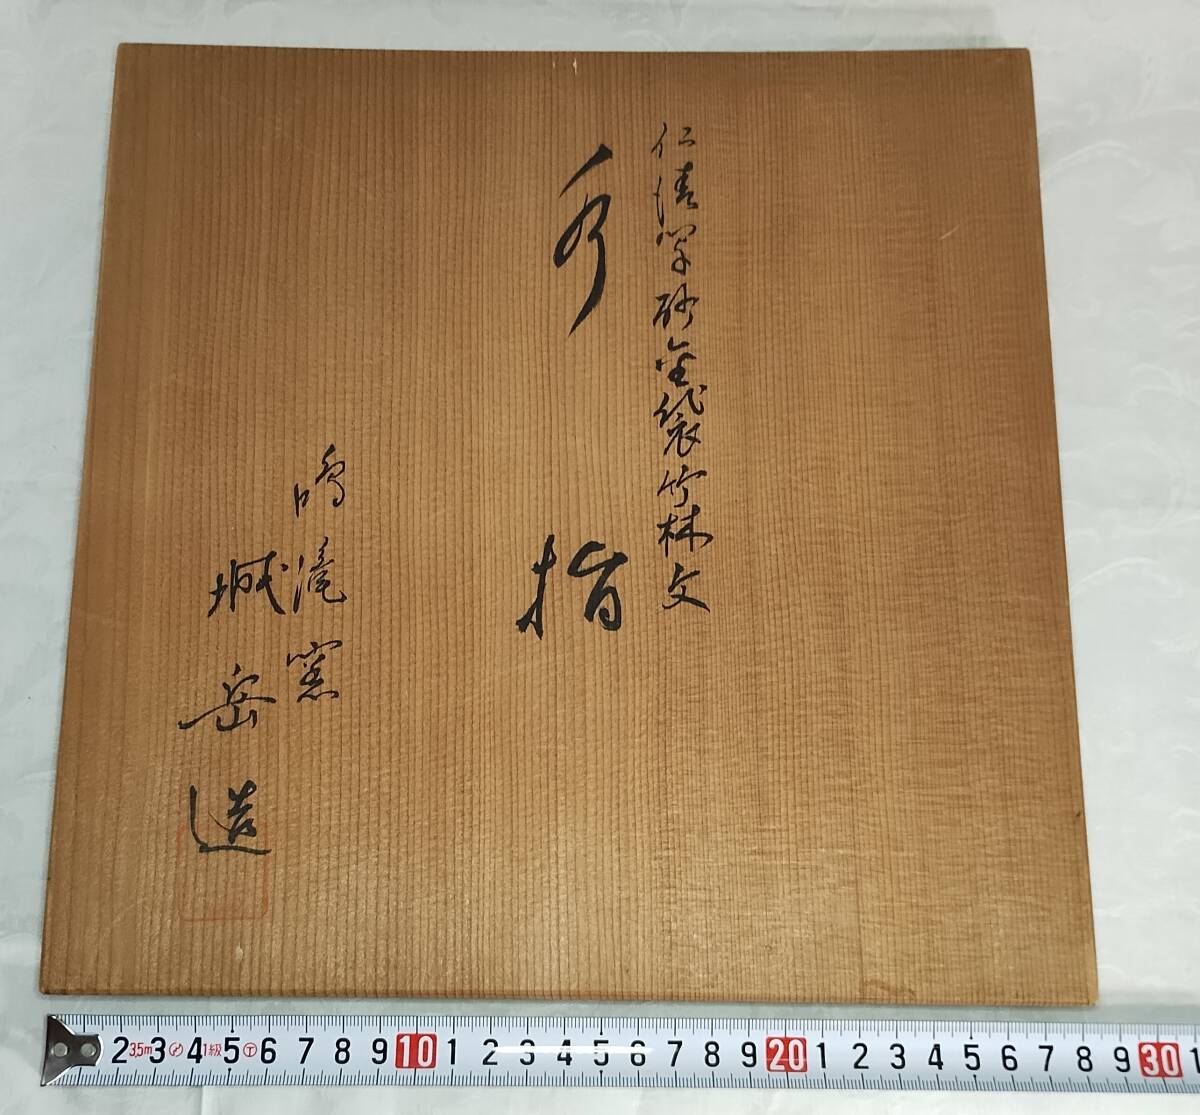 仁清写砂金袋竹林文
水指
鳴滝窯
城岳造
2 3.5m 3 4 1級 5 6 7 8 9 10 1 2 3 4 5 6 7 8 9 20 1 2 3 4 5 6 7 8 9 30 1